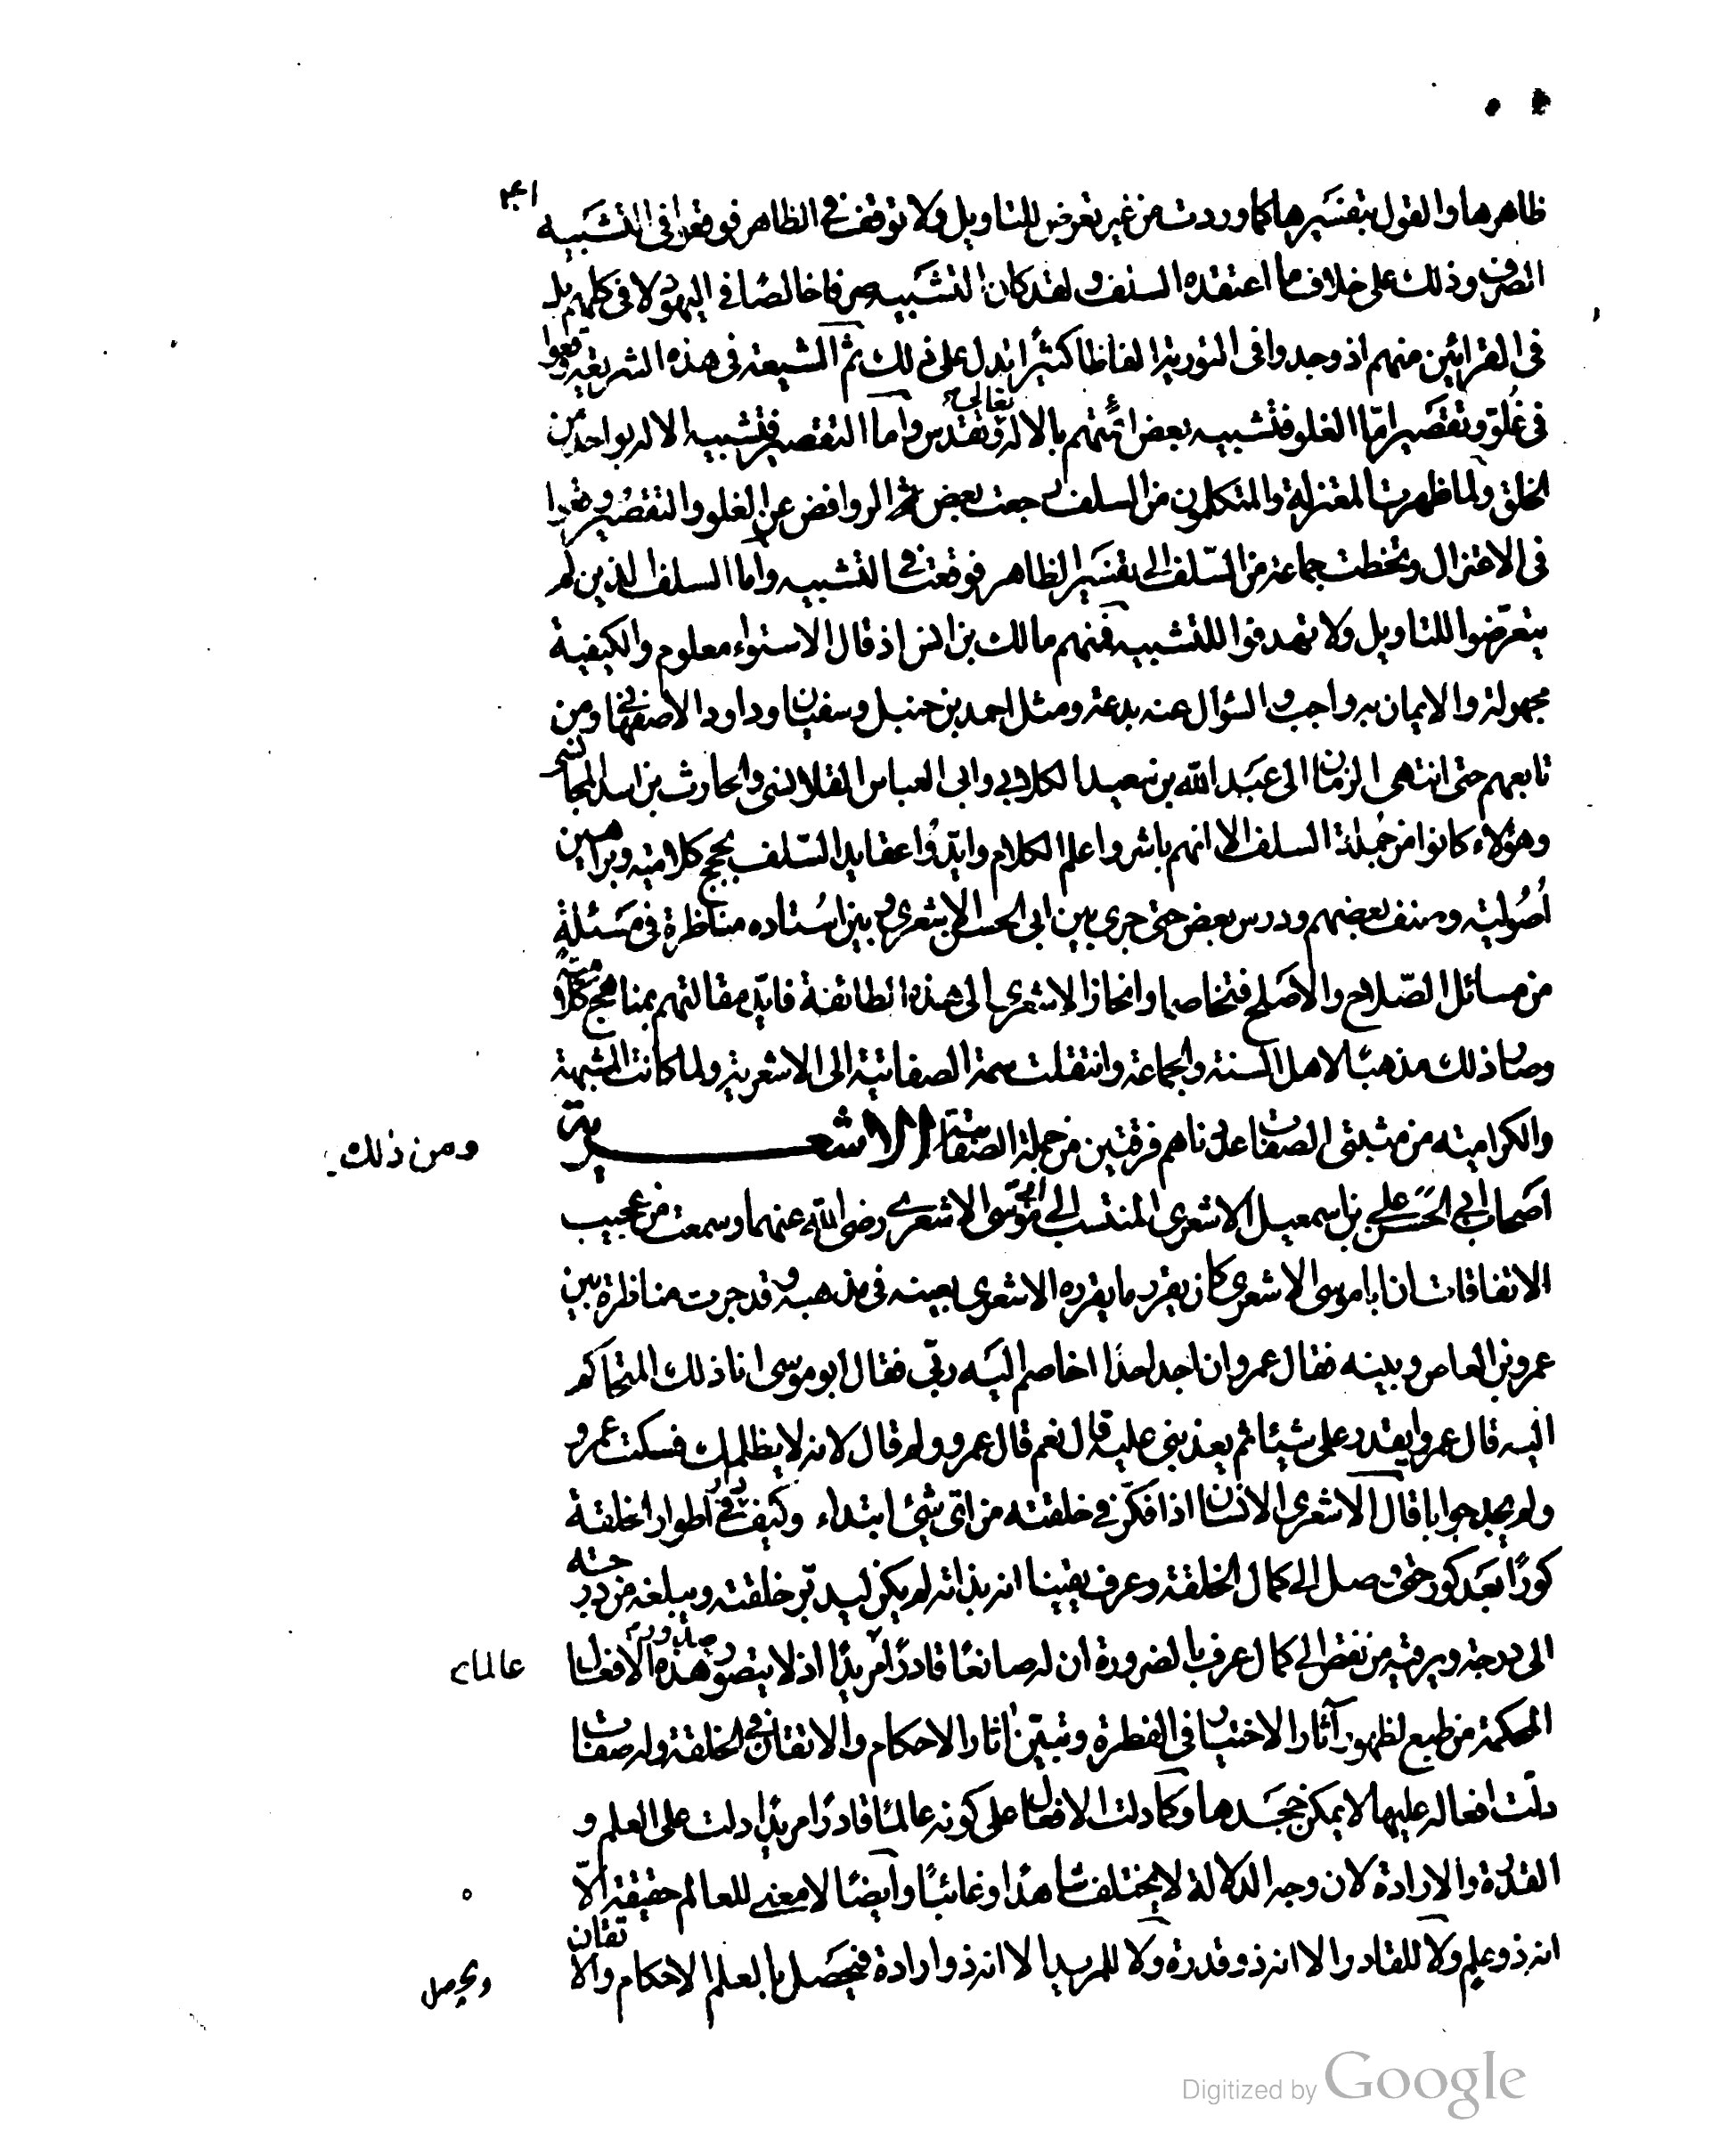 ظاهرها والقول بتفسيرها كما وردت من غير تعرض للتاويل ولا توقف في الظاهر فوقعوا في التشبيه
الصرف وذلك على خلاف ما اعتقده السلف ولقد كان التشبيه صرفا خالصا في اليهود لا في كلهم بل
في القرائين منهم اذ وجدوا في التورية الفاظا كثيرا تدل على ذلك ثم الشيعة في هذه الشريعة وقعوا
في غلو وتقصير اما الغلو فتشبيه بعض ائمتهم بالاله تعالى وتقدس واما التقصير فتشبيه الاله بواحد من
الخلق ولما ظهرت المعتزلة والمتكلمون من السلف رجعت بعض الروافض عن الغلو والتقصير ووقعوا
في الاعتزال وتخطت جماعة من السلف الى تفسير الظاهر فوقعت في التشبيه واما السلف الذين لم
يتعرضوا للتاويل ولا تهدفوا للتشبيه فمنهم مالك بن انس اذ قال الاستواء معلوم والكيفية
مجهولة والايمان به واجب والسؤال عنه بدعة ومثل احمد بن حنبل وسفيان وداود الاصفهاني ومن
تابعهم حتى انتهى الزمان الى عبد الله بن سعيد الكلابي وابي العباس القلانسي والحارث بن اسد المحاسبي
وهؤلاء كانوا من جملة السلف الا انهم باشروا علم الكلام وايدوا عقايد السلف بحجج كلامية وبراهين
اصولية وصنف بعضهم ودرس بعض حتى جرى بين ابي الحسن الاشعري وبين استاده مناظرة في مسئلة
من مسائل الصلاح والاصلح فتخاصما وانحاز الاشعري الى هذه الطائفة فايد مقالتهم بمناهج كلامية
وصار ذلك مذهبا لاهل السنة والجماعة وانتقلت سمة الصفاتية الى الاشعرية ولما كانت المشبهة
والكرامية من مثبتي الصفات عددناهم فرقتين من جملة الصفاتية الاشعرية
ومن ذلك
اصحاب ابي الحسن علي بن اسمعيل الاشعري المنتسب الى ابي موسى الاشعري رضي الله عنهما وسمعت من عجيب
الاتفاقات ان ابا موسى الاشعري كان يقرر ما يقرره الاشعري بعينه في مذهبه وقد جرت مناظرة بين
عمرو بن العاص وبينه فقال عمرو ان اجد احدا اخاصم اليه ربي فقال ابو موسى انا ذلك المتحاكم
اليه قال عمرو ايقدر على شيئا ثم يعذبني عليه قال نعم قال عمرو ولم قال لانه لا يظلمك فسكت عمرو
ولم يجد جوابا قال الاشعري الانسان اذا فكر في خلقته من اي شيئ ابتداء وكيف دار في اطوار الخلقة
كورا بعد كور حتى وصل الى كمال الخلقة وعرف يقينا انه بذاته لم يكن ليدبر خلقته ويبلغه من درجة
الى درجة ويرقيه من نقص الى كمال عرف بالضرورة ان له صانعا قادرا مريدا اذ لا يتصور صدور هذه الافعال
عالما
المحكمة من طبع لظهور آثار الاختيار في الفطرة وتبين اثار الاحكام والاتقان في الخلقة وله صفات
دلت افعاله عليها لا يمكن جحدها وكما دلت الافعال على كونه عالما قادرا مريدا دلت على العلم و
القدرة والارادة لان وجه الدلالة لا يختلف شاهدا وغائبا وايضا لا معنى للعالم حقيقة الا
انه ذو علم ولا للقادر الا انه ذو قدرة ولا للمريد الا انه ذو ارادة فيحصل بالعلم الاحكام والاتقان
ويحصل
Digitized by Google